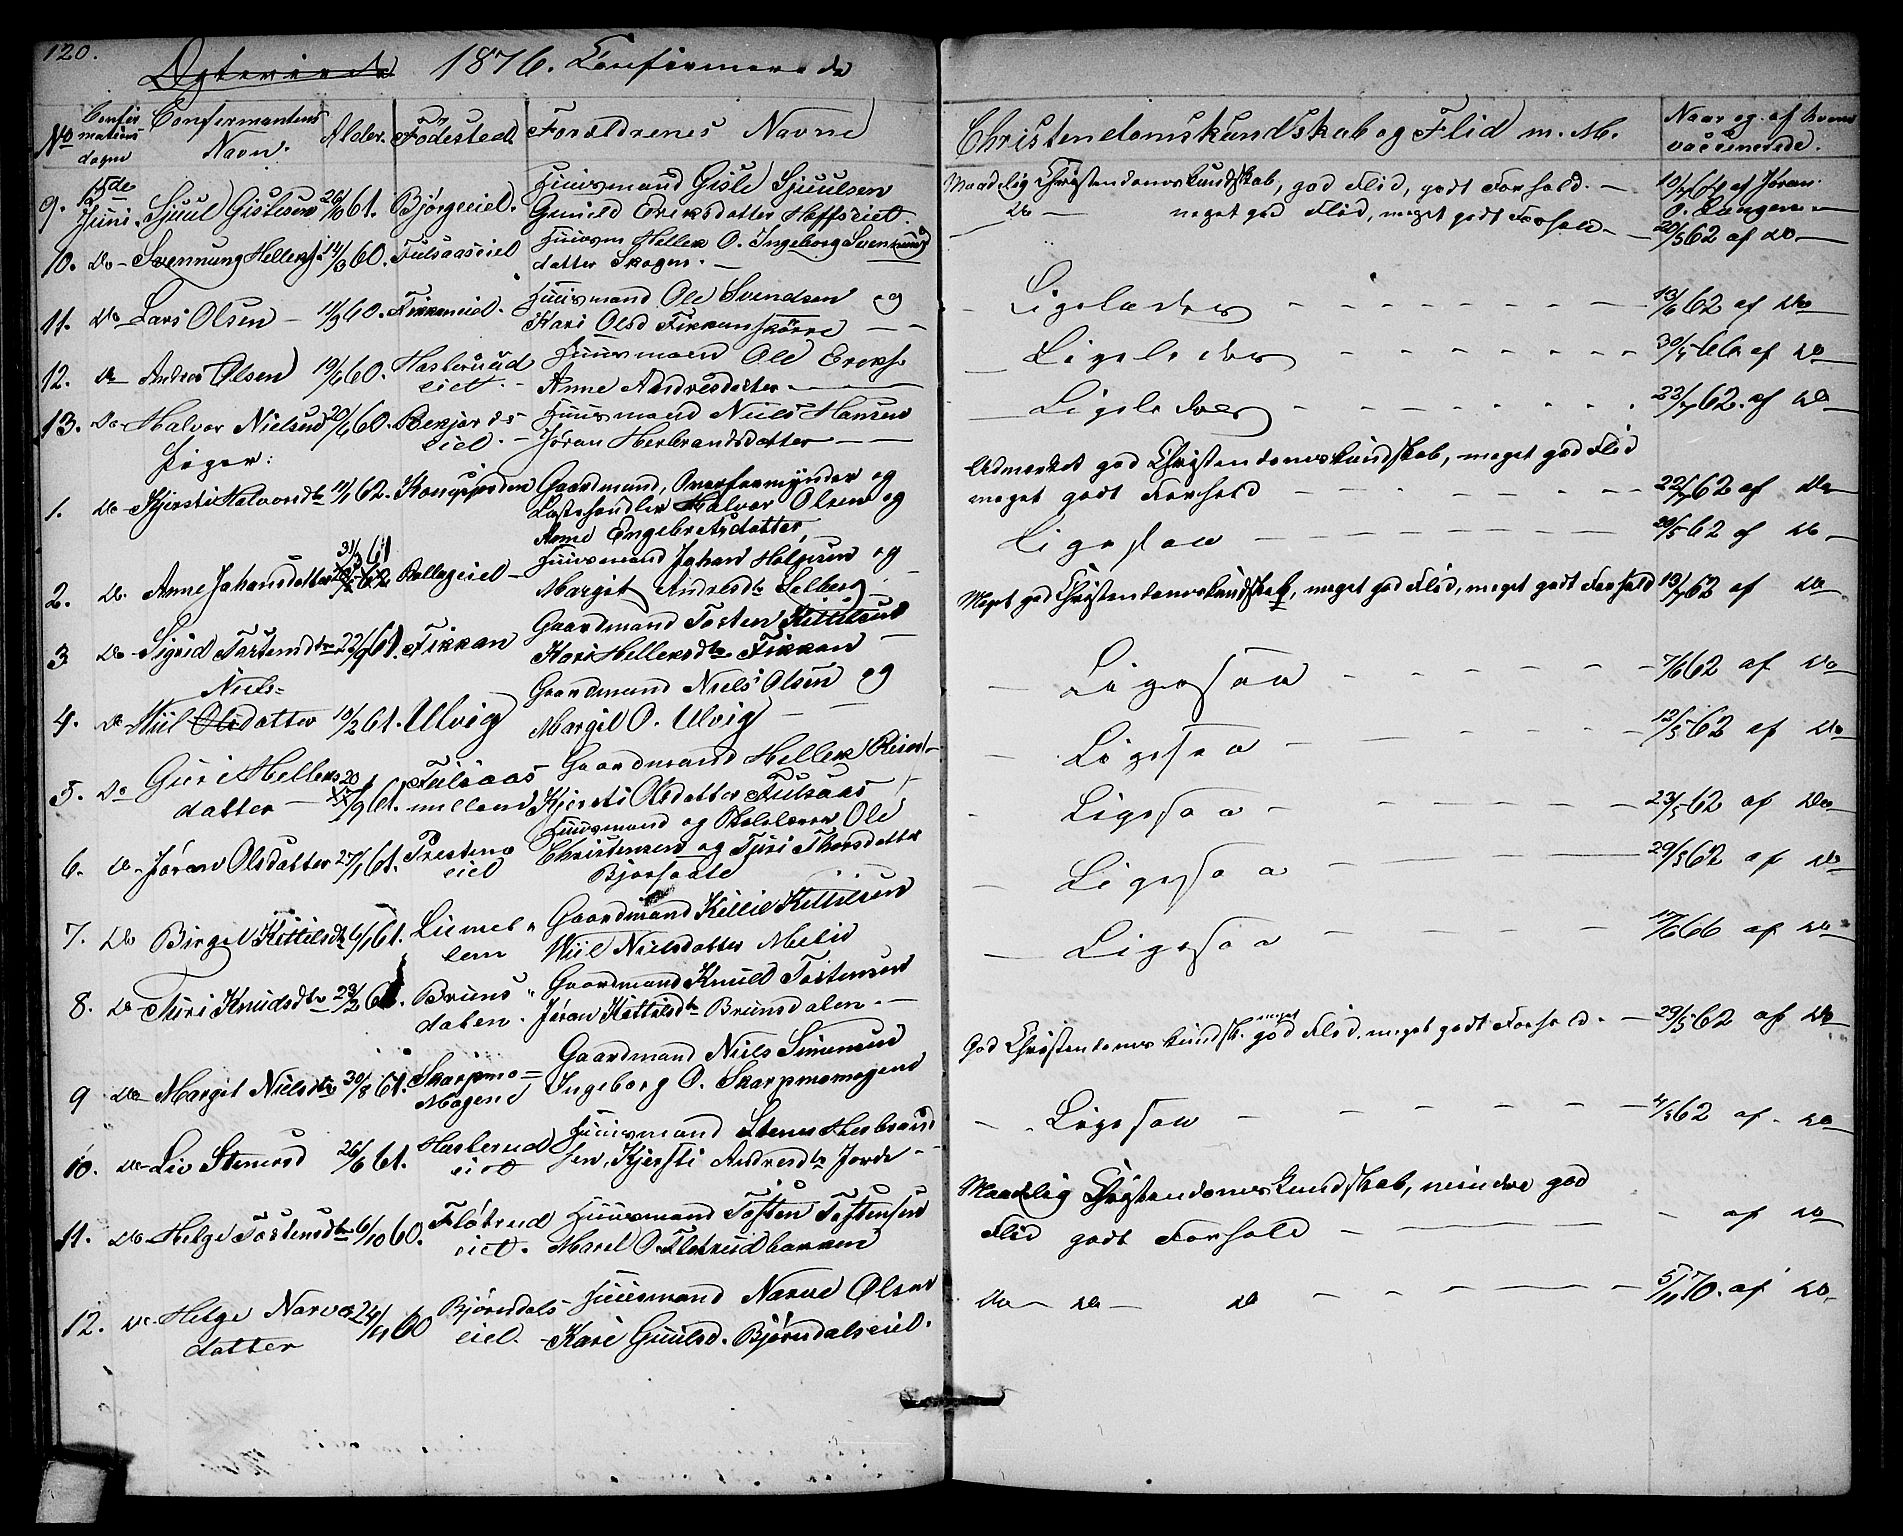 120.
Ægteviede 1876. Confirmerede
No Confirmations dagen Confermantens Navn. Alder. Fødested. Forældrenes Navne
Christendomskundskab og Flid m. M. Naar og af hvem vaccinerede.
9. 15de Juni. Sjuul Gislesen 26/10 61. Bjørgeeiet. Huusmand Gisle Sjuulsen
Gunild Eriksdatter Hoffseiet.
Maadelig Christendomskundskab, god Flid, godt Forhold. — 10/7 64 af Jøran O. Langen —
10. Do — Svennung Helleks. 14/3 60. Fulsaaseiet Huusm Hellek O. Ingeborg Svennungs
datter Skogen. —
Do — meget god Flid, meget godt Forhold — 20/5 62 af Do —
11. Do — Lars Olsen — 11/3 60. Fikkaneiet. Huusmand Ole Svendsen og
Kari Olsd Fikkan — —
Ligeledes — 13/6 62 af Do
12. Do Andres Olsen 19/6 60. Haslerud eiet. — Huusmand Ole Eriks.
Anne Andresdatter. —
Ligeledes — 30/5 66 af Do
13. Do — Halvor Nielsen 20/4 60. eiet. — Huusmand Niels Hansen
Jøran Herbrandsdatter — —
Ligeledes — 22/7 62. af Do —
Piger:
1. Do Kjersti Halvorsdtr 11/1 62. Kongsjorden Gaardmand, Overformynder og
Lastehandler Halvor Olsen og
Anne Engebretsdatter
Udmærket god Christendomskundskab, meget god Flid
meget godt Forhold — 22/7 62 af Do —
2. Do. Anne Johansdatter 31/3 61 Rollageiet — Huusmand Johan Helgesen og
Margit Andresdtr Solberg —
Ligesaa — 30/5 62 af Do —
3 Do — Sigrid Tostensdtr 22/9 61. Fikkan Gaardmand Tosten Kittilsen
Kari Helleksdtr Fikkan —
Meget god Christendomskundskab, meget god Flid, meget godt Forhold 13/7 62 af Do
4. Do Niil Niels= Olsdatter 10/2 61. Ulvig Gaardmand Niels Olsen og
Margit O. Ulvig — —
— Ligesaa — 7/6 62 af Do
5. Do Guri Helleks datter — 20/9 61. Fulsaas mellem Gaardmand Hellek Reiers —
Kjersti Olsdatter Fulsaas
— Ligesaa — 12/5 62 af Do —
6. Do. Jøran Olsdatter 27/1 61. Prestemo eiet Huusmand og Skolelærer Ole
Christensen og Turi Thorsdatter
— Ligesaa — 23/5 62 af Do
7. Do Birgit Kittilsdtr 6/1 61. Liemel " lem Gaardmand Kittil Kittilsen
Niil Nielsdatter
— Ligesaa — 29/5 62 af Do
8. Do Turi Knudsdtr 23/2 61. Bruns " dalen. Gaardmand Knud Tostensen
Jøran Kittilsdtr Brunsdalen. —
— Ligesaa — 17/6 66 af Do
9 Do Margit Nielsdtr 30/8 61. Skarpmo= Mogene Gaardmand Niels Simensen
Ingeborg O. Skarpmomogene
God Christendomskundsk. meget god Flid, meget godt Forhold. — 29/5 62 af Do
10. Do — Liv Stenersd 26/6 61. Haslerud eiet Huusmand Stener Herbrand
sen, Kjersti Andresdtr Jorde —
— Ligesaa — 4/5 62 af. Do
11. Do Helge Tostensdtr 6/10 60. Fløtrud eiet. Huusmand Tosten Tostensen
Marel O. Fløtrudbakken
Maadelig Christendomskundskab, mindre god
Flid godt Forhold — — af Do
12. Do Helge Narve datter 24/11 60 Bjørndals eiet. Huusmand Narve Olsen
— Kari Guulsd. Bjørndalseiet.
Do — Do — Do — 5/11 70. af Do.